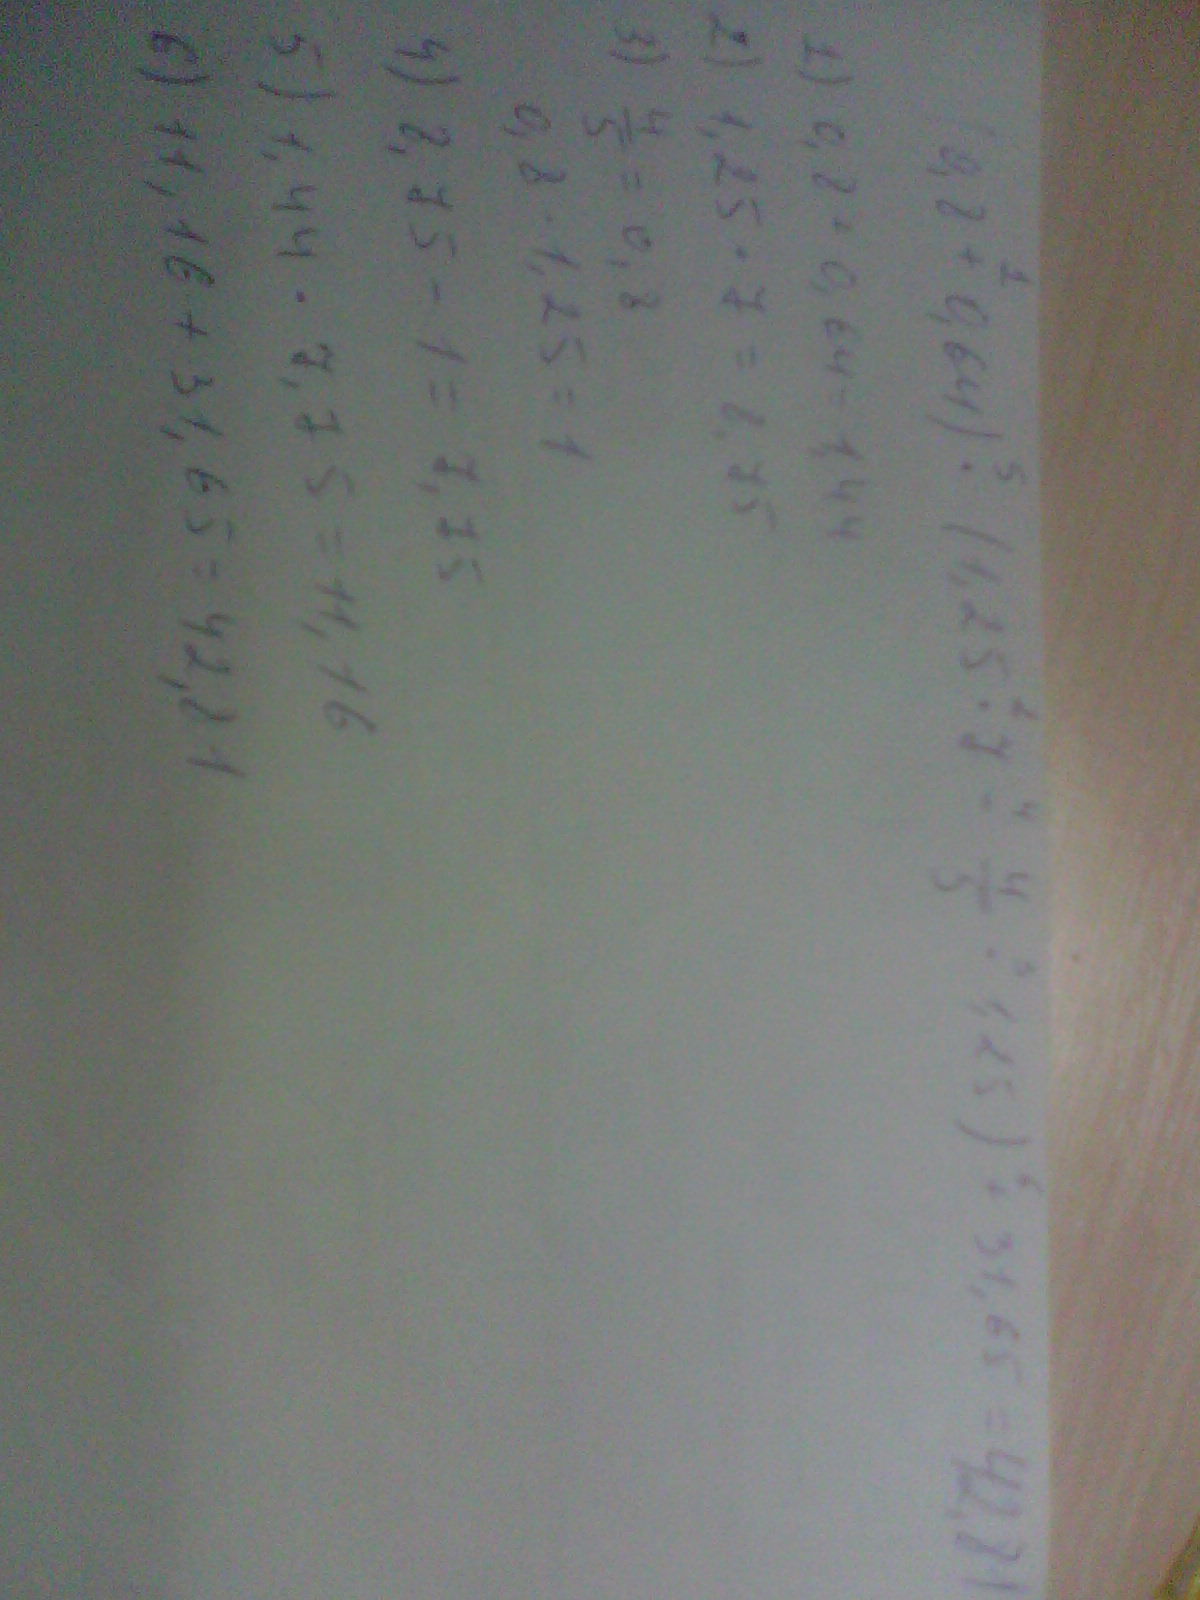 (0,8 + 0,64) · (1,25 · 7 - 4/5 · 1,25) + 31,65 = 42,81
1) 0,8 + 0,64 = 1,44
2) 1,25 · 7 = 8,75
3) 4/5 = 0,8
0,8 · 1,25 = 1
4) 8,75 - 1 = 7,75
5) 1,44 · 7,75 = 11,16
6) 11,16 + 31,65 = 42,81